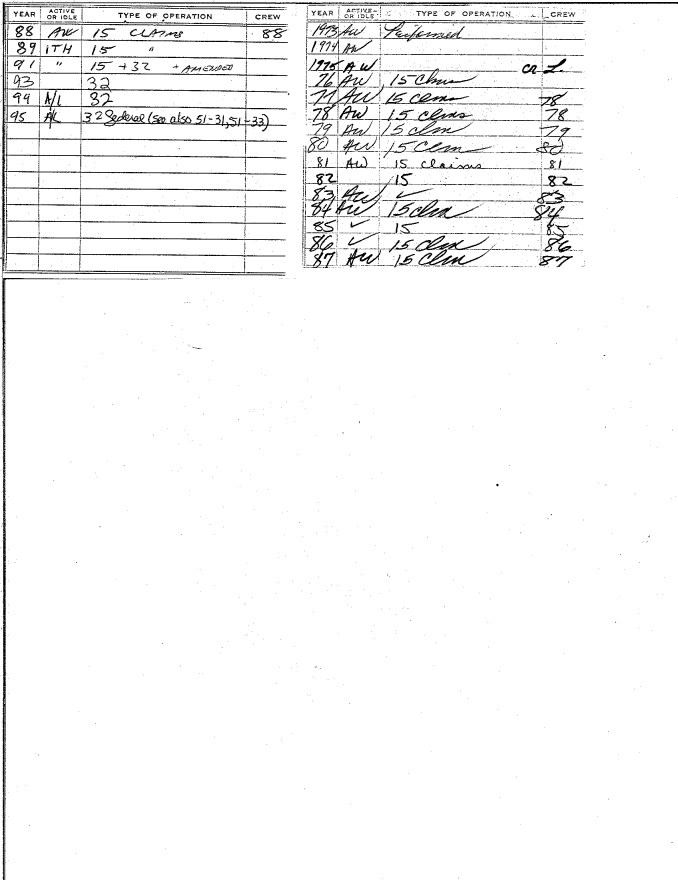 YEAR ACTIVE OR IDLE TYPE OF OPERATION CREW
88 AW 15 CLAIMS 88
89 1TH 15 "
91 " 15 +32 + AMENDED
93 32
94 A/L 32
95 A/L 32 Federal (see also 51-31, 51-33)
YEAR ACTIVE OR IDLE TYPE OF OPERATION CREW
1973 AW Performed
1974 AW
1975 AW
76 AW 15 Clms
77 AW 15 clms 78
78 AW 15 clms 78
79 AW 15 clm 79
80 AW 15 Clm 80
81 AW 15 claims 81
82 15 82
83 AW ✓ 83
84 AW 15 clm 84
85 ✓ 15 85
86 ✓ 15 Clm 86
87 AW 15 Clm 87